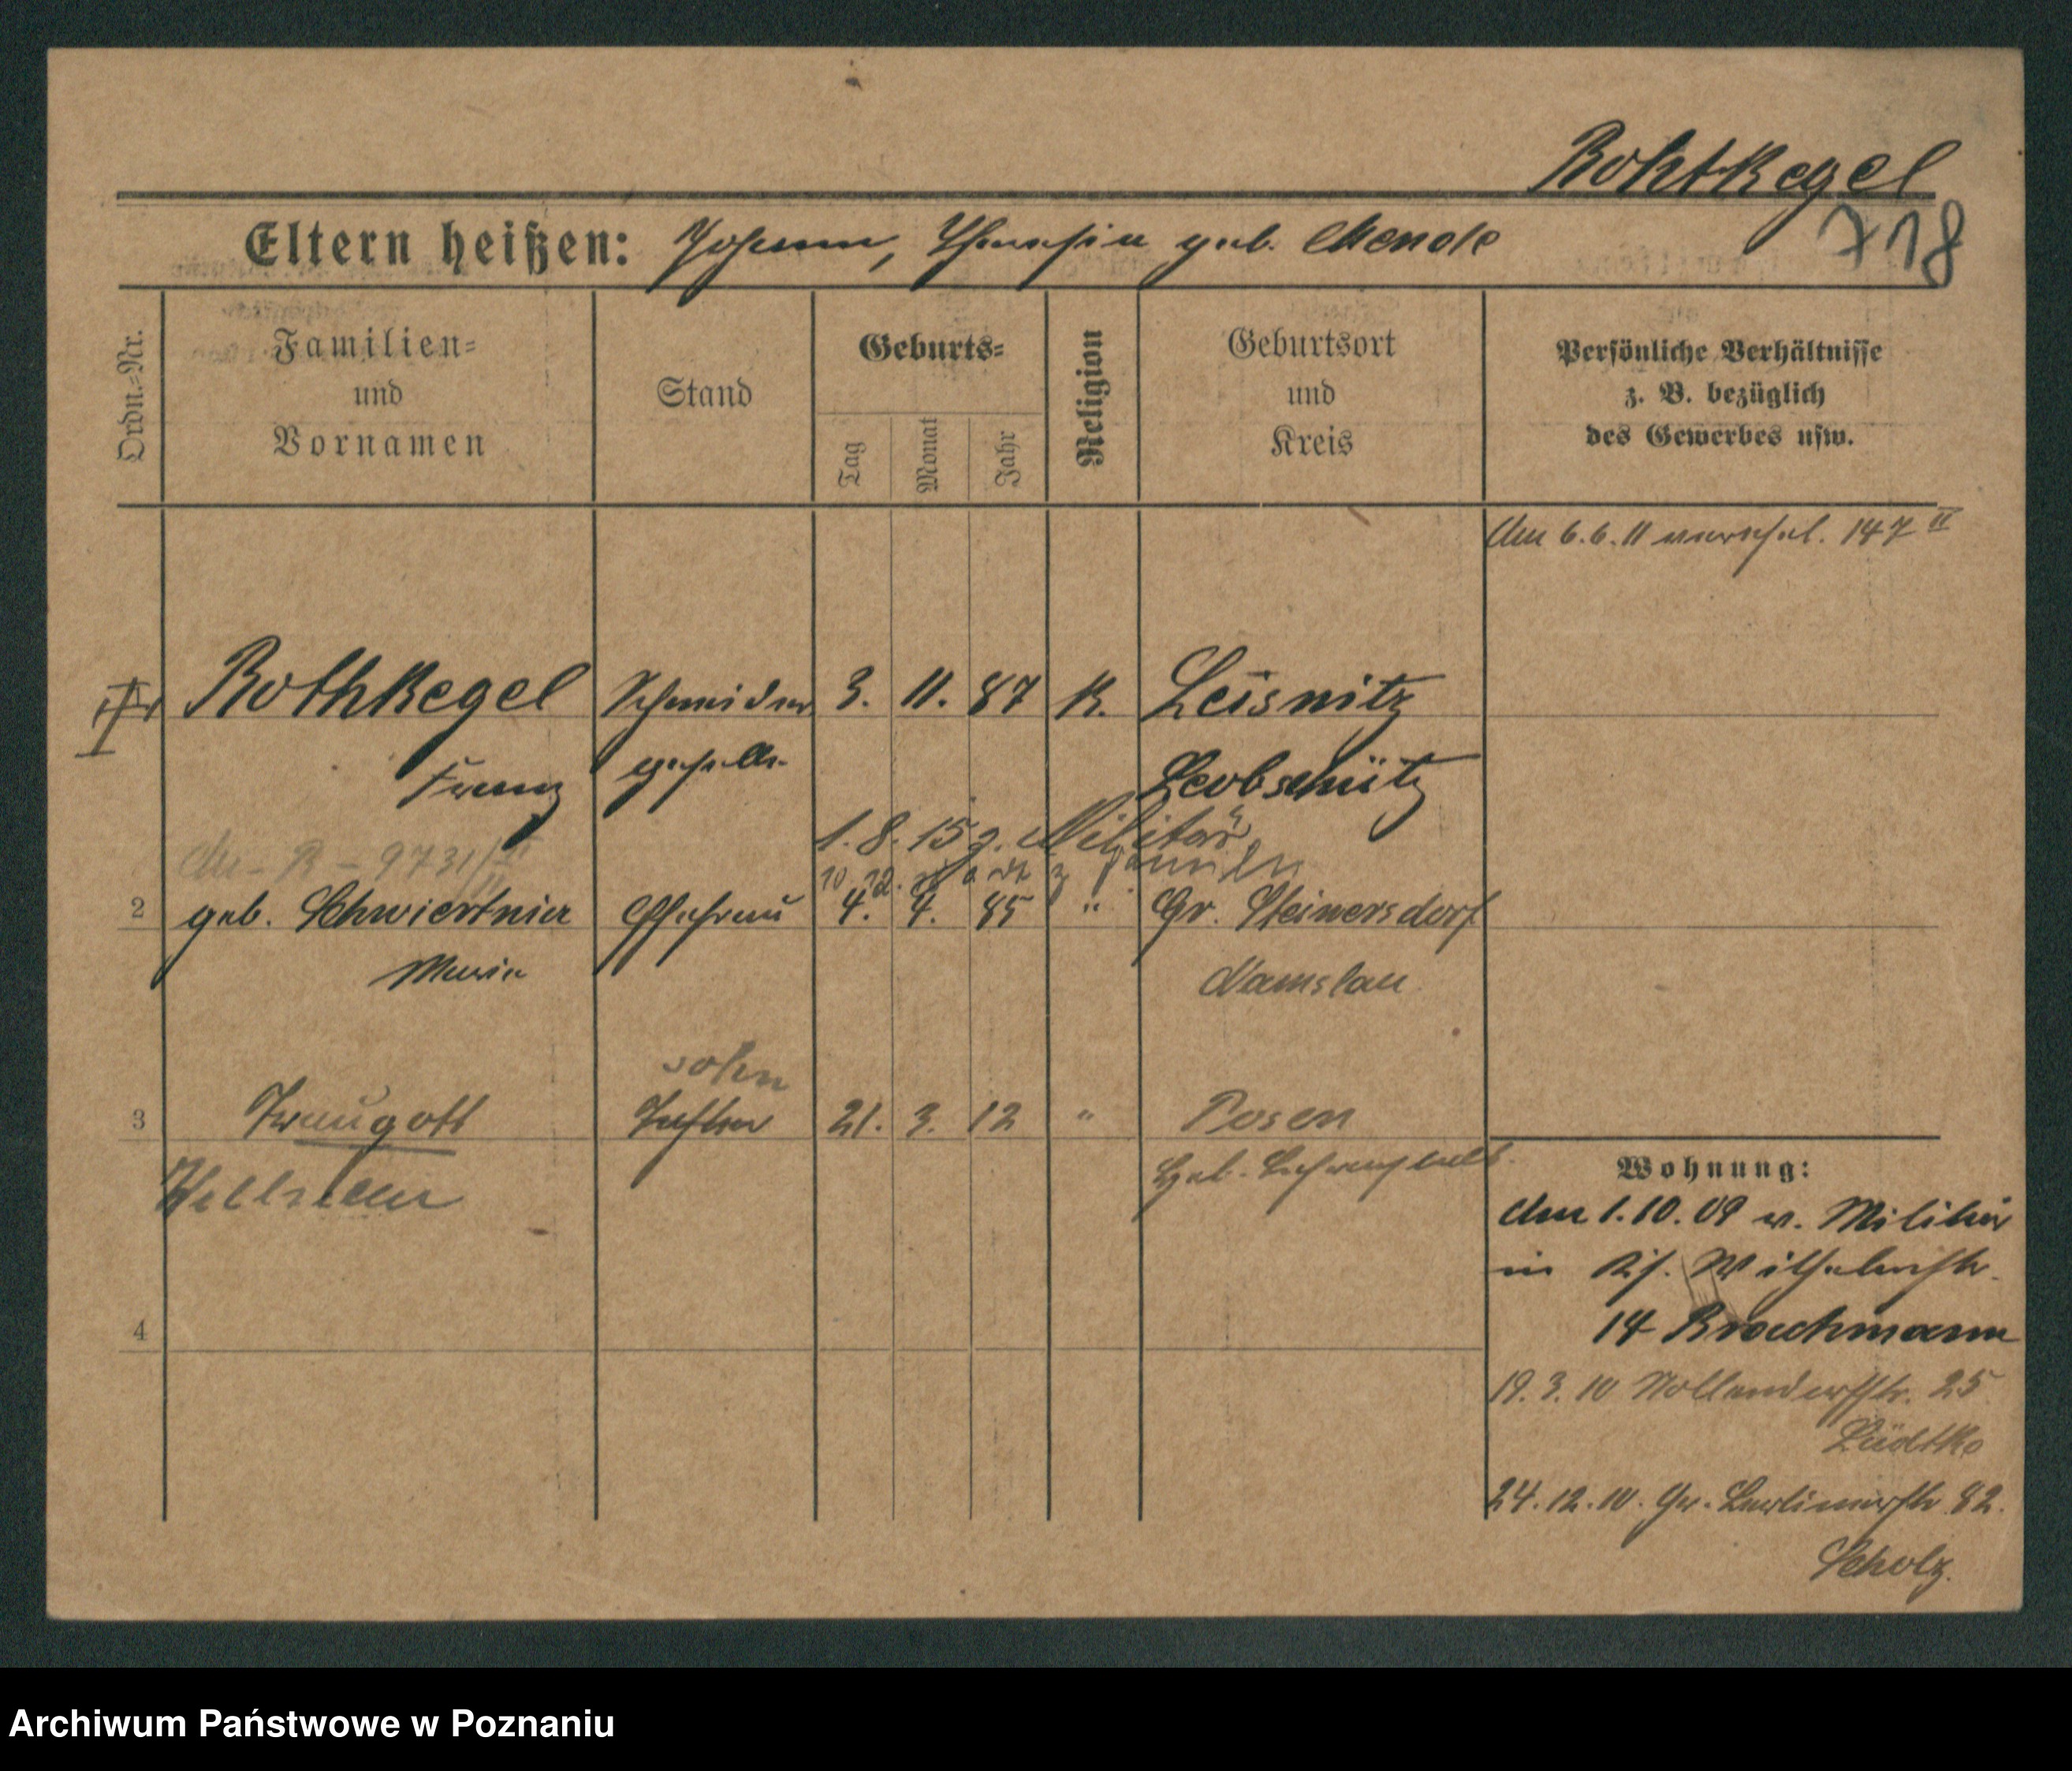 Rohtkegel
718
Eltern heißen: Johann, Theresia geb. Mende
Ordn.-Nr.
Familien-
und
Vornamen
Stand
Geburts-
Tag
Monat
Jahr
Religion
Geburtsort
und
Kreis
Persönliche Verhältnisse
z. B. bezüglich
des Gewerbes usw.
Am 6.6.11 verehel. 147 II
Rothkegel Schneider 3. 11. 87 K. Leisnitz
Franz geselle Leobschütz
R - 9731/II
1.8.15 z. Militär
10. 12. z
2 geb. Schwiertnia Ehefrau 4. 4. 85 " Gr. Steinersdorf
Maria Namslau
Sohn
3 Traugott Tochter 21. 3. 12 " Posen
Geb.
4
Wohnung:
Am 1.10.09 v. Militär
in Wilhelmstr.
14 Brochmann
19.3.10 Nollendorfstr. 25
Lüdtke
24.12.10. Gr. Berlinerstr 82.
Scholz.
Archiwum Państwowe w Poznaniu